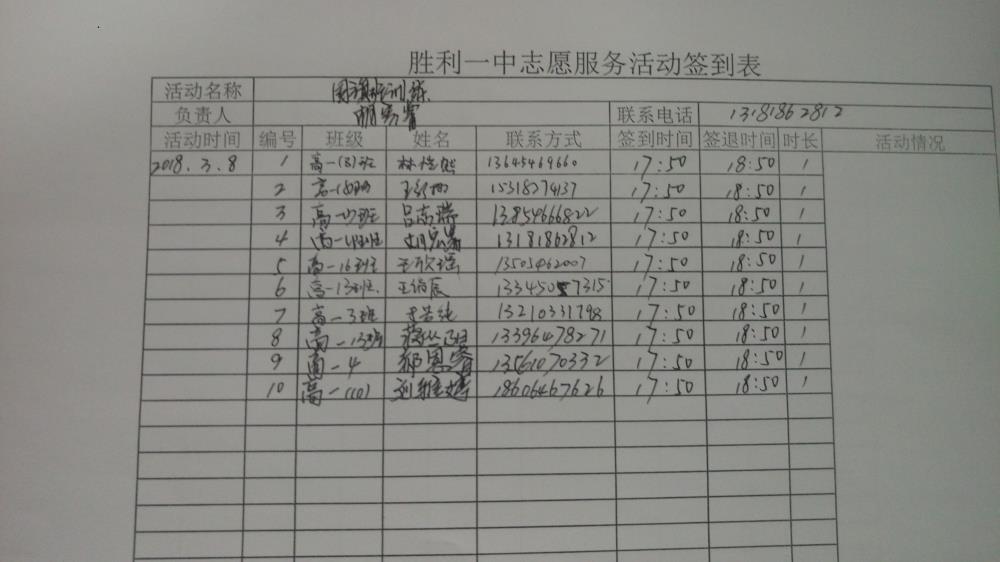 胜利一中志愿服务活动签到表
活动名称 国旗班训练
负责人 联系电话 13181862812
活动时间 编号 班级 姓名 联系方式 签到时间 签退时间 时长 活动情况
2018.3.8 1 高一(8)班 13645469660 17:50 18:50 1
2 15318274137 17:50 18:50 1
3 高一17班 吕志瑞 13854666822 17:50 18:50 1
4 13181862812 17:50 18:50 1
5 高一16班 王欣瑶 13505462007 17:50 18:50 1
6 高一13班 17:50 18:50 1
7 高一3班 13210331798 17:50 18:50 1
8 高一13班 13396478271 17:50 18:50 1
9 高一4 郝恩睿 13561070332 17:50 18:50 1
10 高一(10) 刘雅婷 18606467626 17:50 18:50 1